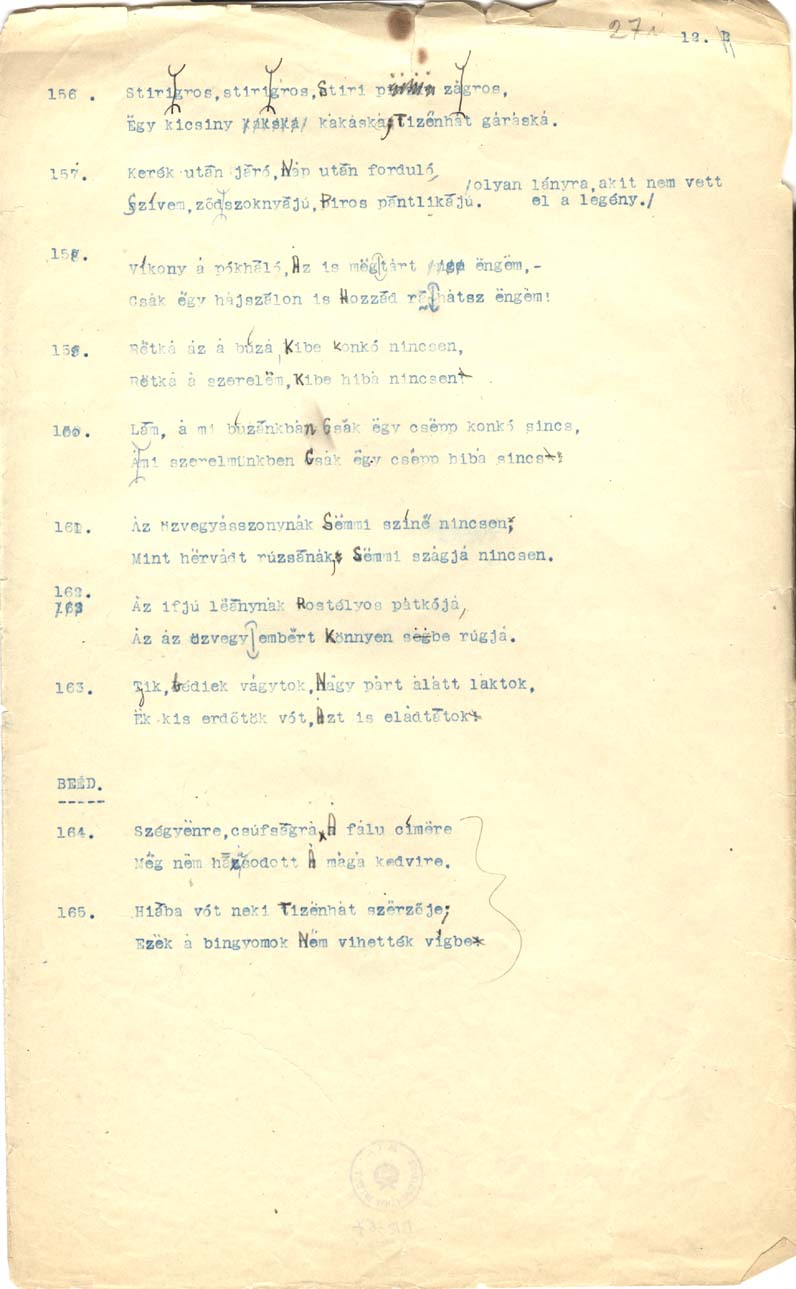 27. 12.
156. Stirigros, stirigros, Stiri zágros,
Ëgy kicsiny kákáská, Tizënhát gáráská.
157. Kerék után járó, Nap után forduló,
/olyan lányra, akit nem vett
Szívem, zödszoknyájú, Piros pántlikájú. el a legény./
158. Víkony á pókháló, Az is mëgtárt ëngëm,-
Csák ëgy hájszálon is Hozzád ráhátsz ëngëm!
159. Rëtká áz á búzá, Kibe konkó nincsen,
Rëtká á szerelëm, Kibe hibá nincsen
160. Lám, á mi búzánkbán Csák ëgy csëpp konkó sincs,
Ámi szerelmünkben Csák ëgy csëpp hibá sincs!
161. Áz özvegyásszonynák Sëmmi színë nincsen,
Mint hërvádt rúzsánák, Sëmmi szágjá nincsen.
162. Áz ifjú lëánynák Rostélyos pátkójá,
Áz áz özvegy embërt Könnyen sëgbe rúgjá.
163. Tik, bédiek vágytok, Nágy párt álátt láktok,
Ëk kis erdőtök vót, Azt is eládtátok
BEÉD.
164. Szégyënre, csúfságrá, Á fálu címëre
Mëg nëm házásodott Á mágá kedvire.
165. Hiába vót neki Tizënhát szërzője;
Ezëk á bingyomok Nëm vihették vígbe